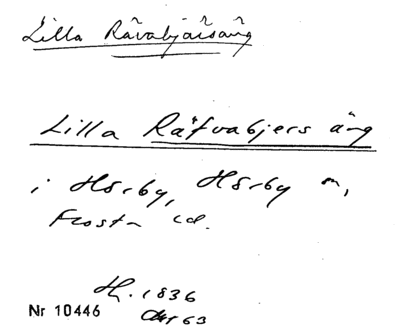 Lilla Rävabjärsäng
Lilla Räfvabjers äng
i Hörby, Hörby sn,
Frosta hd.
H. 1836
Nr 10446
Akt 63